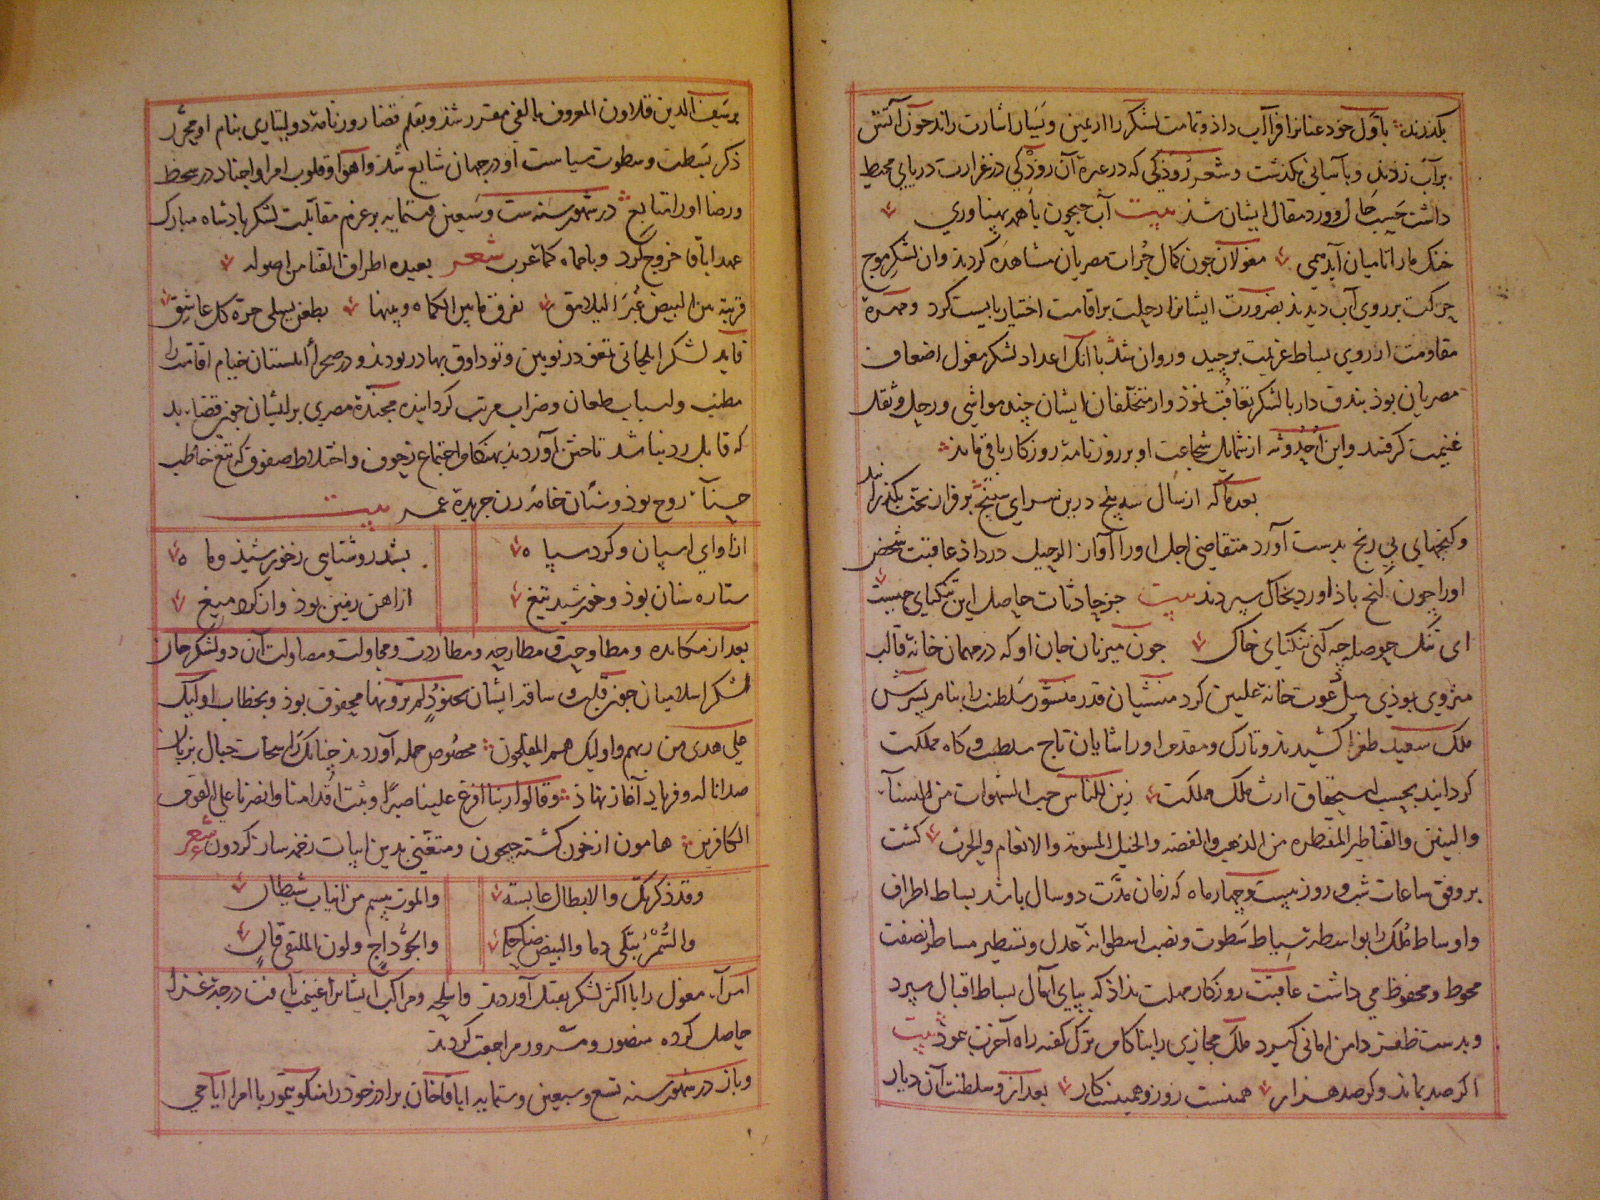 بگذرند بأول خود عنانرا فرا آب داذ و تمامت لشکر را ارعین و یسار اشارت راند چون آتش
بر آب زدند و بآسانی بگذشت و شعر زودکی که در عبره آن روذ کی در غزارت دریای محیط
داشت حسب حال و ورد مقال ایشان شذ بیت آب جیحون با همه پهناوری
خنک ما را تا میان آید همی مغولان چون کمال جرات مصریان مشاهده کردند وان لشکر موج
حرکت بر روی آب دیدند بضرورت ایشانرا رحلت بر اقامت اختیار بایست کرد و مهره
مقاومت از روی بساط عزیمت برچید و روان شد با آنک اعداد لشکر مغول اضعاف
مصریان بوذ بندق دار با لشکر تعاقب نموذ و از متخلفان ایشان چند مواشی و رحل و ثقل
غنیمت گرفتند و این احدوثه از شمایل شجاعت او بر روزنامه روزکار باقی ماند
بعد ما که از سال سه پنج درین سرای سپنج بر فراز تخت بگذرانید
و گنجهای بی رنج بدست آورد متقاضی اجل او را آواز الرحیل درداذ عاقبت شخص
او را چون گنج باذ آورد بخاک سپردند بیت جز حادثات حاصل این تنکنای چیست
ای تنک حوصله چه کنی تنکنای خاک چون میزبان جان او که در مهمان خانه قالب
منزوی بوذی میل غرفت خانه علیین کرد منشیان قدر منشور سلطنت را بنام پسرش
ملک سعید طغرا کشیدند و تارک و مقدم او را شایان تاج سلطنت و کاه مملکت
کردانید بحسب استحقاق ارث ملک مملکت زین للناس حب الشهوات من النسآء
والبنین والقناطیر المقنطره من الذهب والفضه والخیل المسومه والانعام والحرث کشت
بر وفق ساعات شب و روز بیست و چهار ماه که زمان مدّت دو سال باشد بساط اطراف
و اوساط ملک را بواسطه سیاط سطوت و نصب اسطوانه عدل و تسطیر مساطر نصفت
محوط و محفوظ می داشت عاقبت روزکار مهلت نداذ که بپای آمال بساط اقبال سپرد
و بدست ظفر دامن امانی کیرد ملک مجازی را بناکام ترک کفته راه آخرت نموذ بیت
اکر صد بماند وکر صد هزار همینست روز و همینست کار بعد ازو سلطنت آن دیار
بر سیف الدین قلاون المعروف بالفی مقرر شذ و بقلم قضا روزنامه دولتیاری بنام او محرر
ذکر بسطت و سطوت سیاست او در جهان شایع شد و اهوا و قلوب امرا و اجناد در سخط
و رضا او را متابع در شهور سنه ست و سبعین و ستمایه بر عزم مقابلت لشکر پادشاه مبارک
عهد اباقا خروج کرد و با حماه کماه عرب شعر بعیده اطراف القنا من اصوله
قریبه من البیض غبر الیلامق نفرق ما بین الکماه وبینها بطعن یسلی حره کل عاشق
قاید لشکر ایلخانی تتغو در نوین و تودااوق بهادر بودند و در صحرا ابلستان خیام اقامت را
مطنب و اسباب طعان و ضراب مرتب کردانیده مجنده مصری بر ایشان چون قضاء بد
که قابل رد نباشد تاختن آوردند بهنکام اجتماع زحوف و اختلاط صفوف که تیغ خاطب
حسنآء روح بوذ و سنان خامه زن جریده عمر بیت
از آوای اسپان و کرد سپاه بشد روشنایی ز خورشید و ماه
ستاره سنان بوذ و خورشید تیغ از آهن زمین بوذ و از کرد میغ
بعد از مکابده و مطاوحت و مطارحه و مطاردت و مجاولت و مصاولت آن دو لشکر جرار
لشکر اسلامیان چون قلب و ساقه ایشان بجنود لم تروها محفوف بوذ و بخطاب اولیک
علی هدی من ربهم واولیک هم المفلحون مخصوص حمله آوردند چنانک راسخات جبال بزبان
صدا ناله و فریاد آغاز نهاذ وقالوا ربنا افرغ علینا صبرا وثبت اقدامنا وانصرنا علی القوم
الکافرین هامون از خون کشته جیحون و متغنی بدین ابیات زخمه ساز کردون شعر
وقد ذکرتک والابطال عابسه والموت یبسم من انیاب شیطان
والسُّمرُ تبکی دما والبیض ضاحکه والجوّ داج ولون الملتقی قان
امرآء مغول را با اکثر لشکر بقتل آوردند و اسلحه و مراکب ایشانرا غنیمت یافت درجه غزا
حاصل کرده منصور و مسرور مراجعت کردند
و باز در شهور سنه تسع و سبعین و ستمایه اباقا خان براذر خود را منکو تیمور با امرا ایاجی